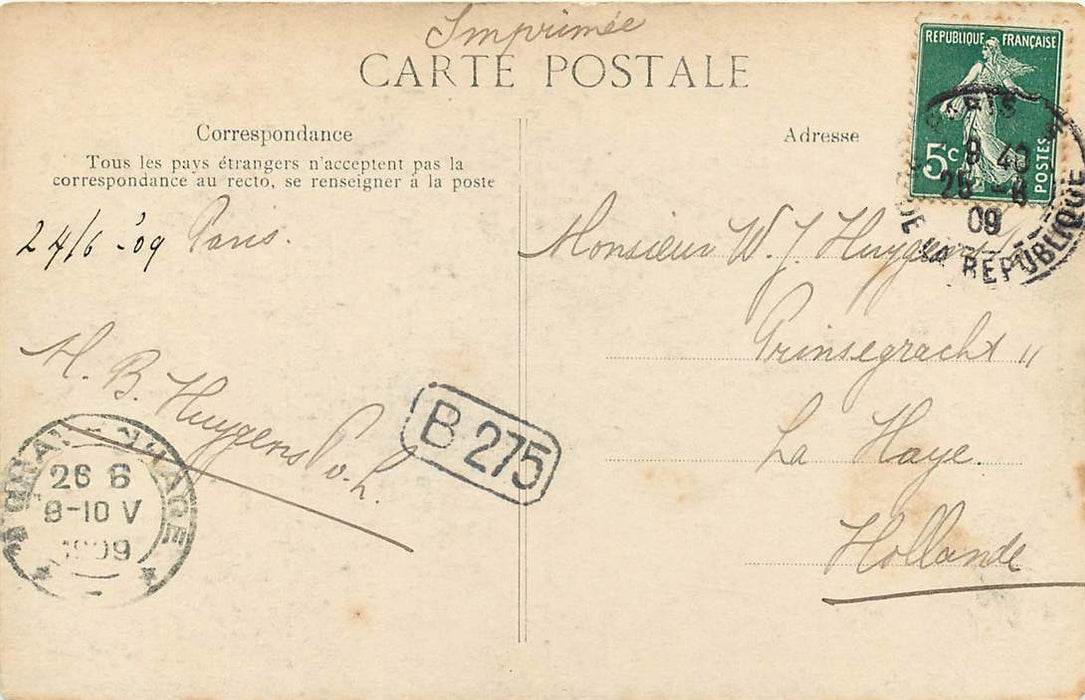 Imprimée
CARTE POSTALE
REPUBLIQUE FRANÇAISE
5c
POSTES
PARIS
9 40
25 - 6
09
DE LA REPUBLIQUE
Correspondance
Tous les pays étrangers n'acceptent pas la
correspondance au recto, se renseigner à la poste
24/6 -'09 Paris.
H. B. Huygens
B 275
26 6
8-10 V
1909
Adresse
Monsieur W. J. Huygens
Prinsegracht 11
La Haye.
Hollande